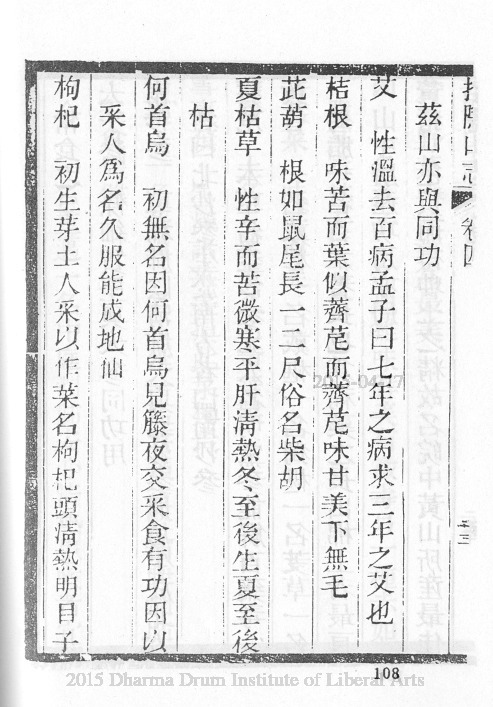 山志
卷四
茲山亦與同功
艾 性溫去百病孟子曰七年之病求三年之艾也
桔根 味苦而葉似薺苨而薺苨味甘美下無毛
茈葫 根如鼠尾長一二尺俗名柴胡
夏枯草 性辛而苦微寒平肝清熱冬至後生夏至後
枯
何首烏 初無名因何首烏見籐夜交采食有功因以
采人爲名久服能成地仙
枸杞 初生芽土人采以作菜名枸杞頭清熱明目子
108
2015 Dharma Drum Institute of Liberal Arts